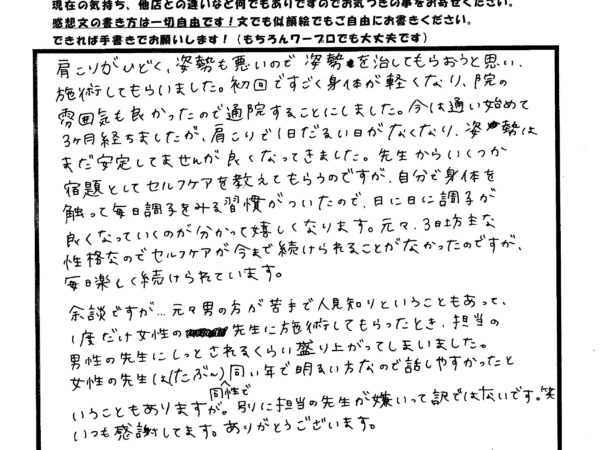 現在の気持ち、他店との違いなど何でもありですのでお気づきの事をお寄せください。
感想文の書き方は一切自由です！文でも似顔絵でもご自由にお書きください。
できれば手書きでお願いします！（もちろんワープロでも大丈夫です）
肩こりがひどく、姿勢も悪いので 姿勢を治してもらおうと思い、
施術してもらいました。初回ですごく身体が軽くなり、院の
雰囲気も良かったので通院することにしました。今は通い始めて
3ヶ月経ちましたが、肩こりで1日だるい日がなくなり、姿勢は
まだ安定してませんが良くなってきました。先生からいくつか
宿題としてセルフケアを教えてもらうのですが、自分で身体を
触って毎日調子をみる習慣がついたので、日に日に調子が
良くなっていくのが分かって嬉しくなります。元々、3日坊主な
性格なのでセルフケアが今まで続けられることがなかったのですが、
毎日楽しく続けられています。
余談ですが…元々男の方が苦手で人見知りということもあって、
1度だけ女性の先生に施術してもらったとき、担当の
男性の先生にしっとされるくらい盛り上がってしまいました。
女性の先生は(たぶん)同い年で明るい方なので話しやすかったと
同性で
いうこともありますが。別に担当の先生が嫌いって訳ではないです。笑
いつも感謝してます。ありがとうございます。